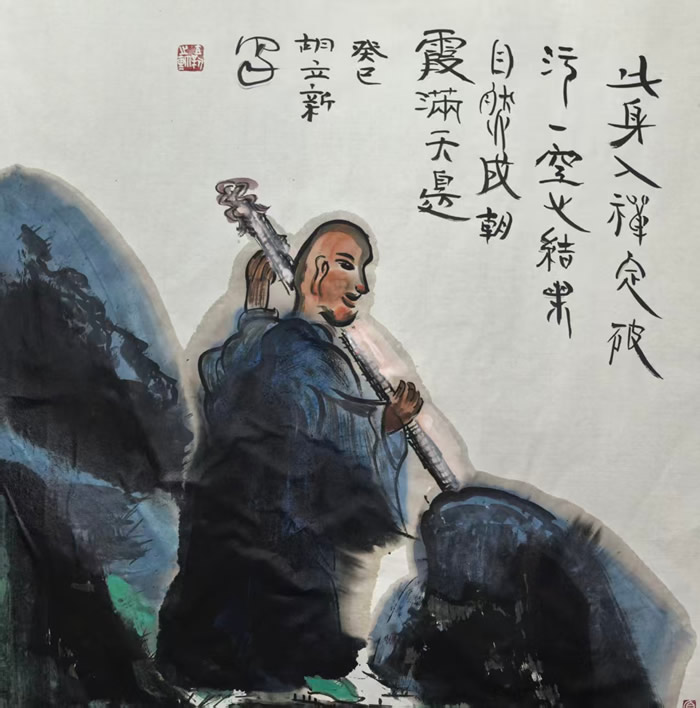 此身入禪定破
污一空也結果
自然成朝
霞滿天邊
癸巳
胡立新